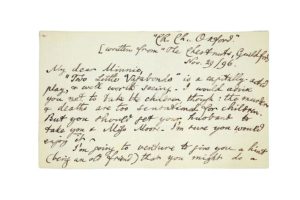 "Ch. Ch. Oxford"
[written from "The Chestnuts, Guildford,
Nov. 29/96.
My dear Minnie,
"Two Little Vagabonds" is a capitally-acted
play, & well worth seeing. I would advise
you not to take the children though: the murders
& deaths are too sensational for children.
But you should get your husband to
take you & Miss Moon. I'm sure you would
enjoy it.
I'm going to venture to give you a hint
(being an old friend) that you might do a